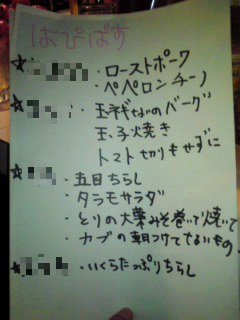 はぴばす
☆ ・ローストポーク
・ペペロンチーノ
☆ ・玉ネギなめのバーグ
玉子焼き
トマト切りもせずに
☆ ・五目ちらし
・タラモサラダ
・とりの大葉みそ巻いて焼いて
・カブの朝つけてないもの
☆ ・いくらたっぷりちらし